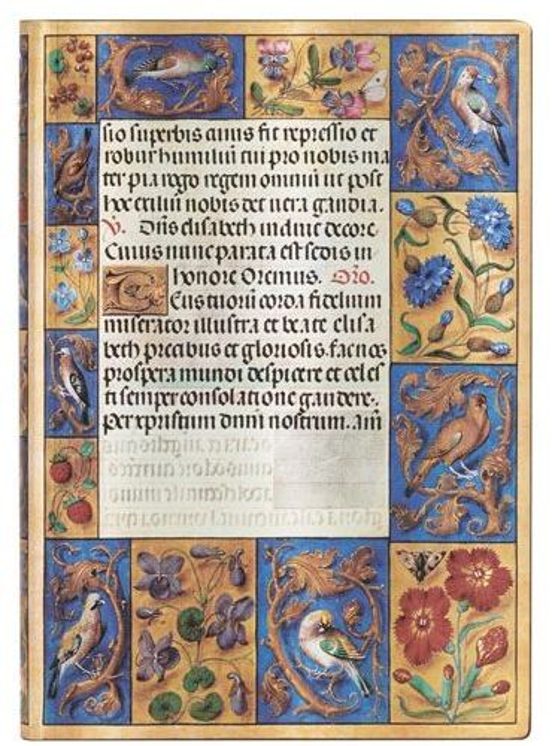 sio superbis cuius fit repressio et
robur humiliū cui pro nobis ma
ter pia rogo regem omniū ut post
hoc exiliū nobis det uera gaudia.
V. Diis elisabeth induit decore
Cuius nunc parata est sedis in
honore Oremus. Oro.
Eus tuorū corda fidelium
miserator illustra et beate elisa
beth precibus et gloriosis. fac nos
prospera mundi despicere et celes
ti semper consolatione gaudere.
Per xpristum dnm nostrum. am